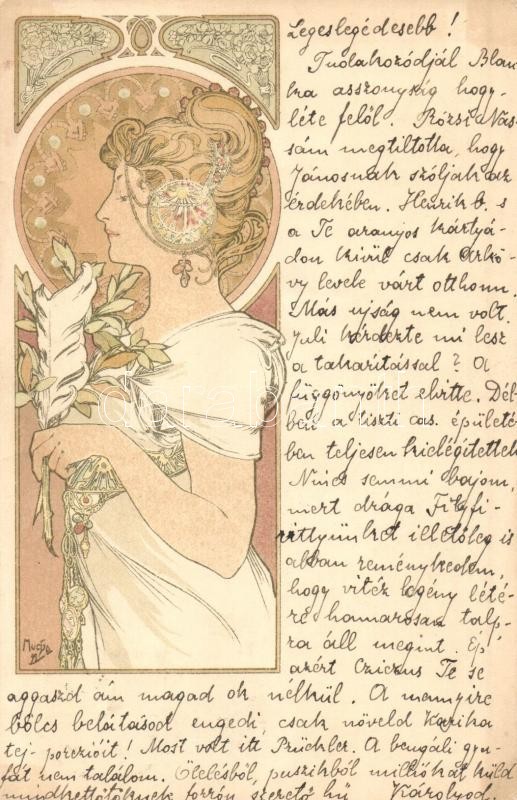 Legeslegédesebb!
Tudakozódjál Blan
ka asszonyság hogy-
léte felől. Rózsi Nás-
sám megtiltotta, hogy
Jánosnak szóljak az
érdekében. Henrik b. s
a Te aranyos kártyá-
don kívül csak Arkö-
vy levele várt otthonn.
Más ujság nem volt.
Juli kérdezte mi lesz
a takarítással? A
függönyöket elvitte. Dél-
ben a tiszti cas. épületé-
ben teljesen kielégítettek
Nincs semmi bajom,
mert drága
illetőleg is
abban reménykedem,
hogy vitéz legény lété-
re hamarosan talp-
ra áll megint. Ép
azért Cziczus Te se
aggaszd ám magad ok nélkül. A mennyire
bölcs belátásod engedi, csak növeld Karika
tej-porczióit! Most volt itt Prückler. A bengali gyu-
fát nem találom. Ölelésből, puszikból milliókat küld
mindkettőtöknek forrón szerető hű Károlyod.
Mucha
darabanth